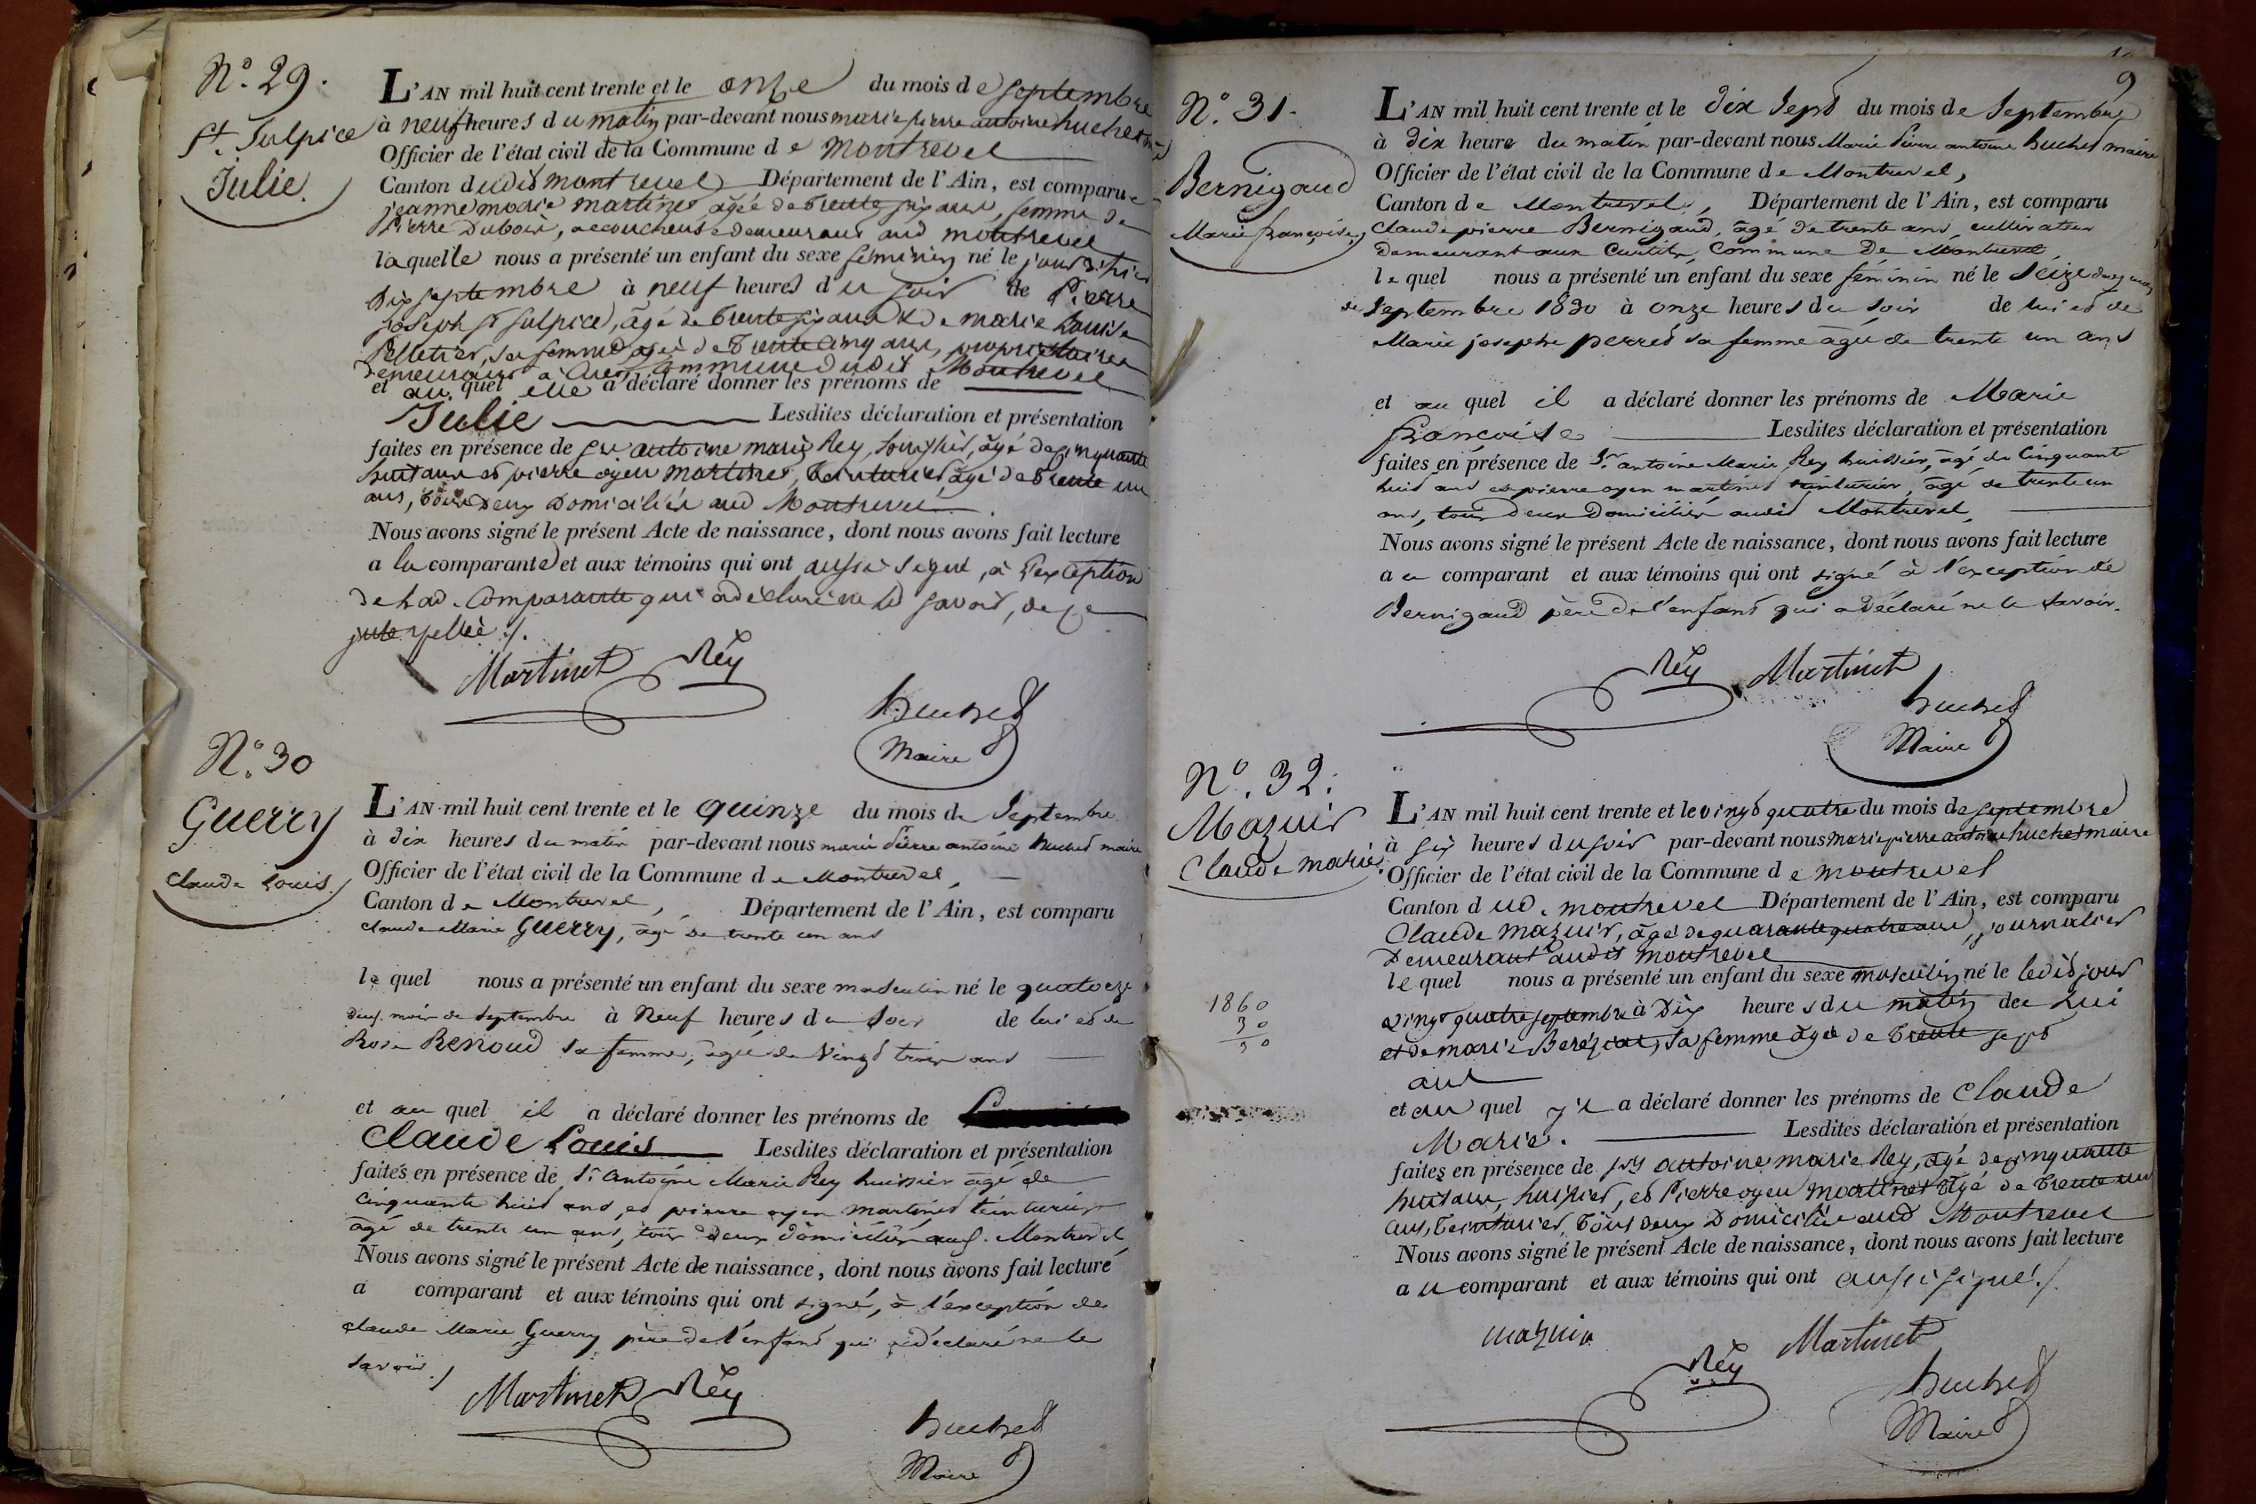 N.° 29.
St. Sulpice
Julie.
L'AN mil huit cent trente et le onze du mois de Septembre
à neuf heures du matin par-devant nous marie pierre antoine huchet
Officier de l'état civil de la Commune de Montrevel
Canton dudit montrevel Département de l'Ain, est comparue
jeanne marie martinet, âgée de trente six ans, femme de
Pierre Dubois, accoucheuse demeurant aud montrevel
laquelle nous a présenté un enfant du sexe féminin né le jour d'hier
dix septembre à neuf heures du soir de Pierre
joseph St Sulpice, âgé de trente six ans & de marie Louise
Pelletier, sa femme agée de trente cinq ans, propriétaires
demeurant à Commune dudit Montrevel
et au quel elle a déclaré donner les prénoms de
Julie Lesdites déclaration et présentation
faites en présence de antoine marie Rey, huissier, âgé de cinquante
huit ans et pierre oyen martinet, teinturier, âgé de trente un
ans, tous deux Domiciliés aud Montrevel.
Nous avons signé le présent Acte de naissance, dont nous avons fait lecture
a la comparante et aux témoins qui ont aussi signé, à l'exception
de lad. Comparante qui a déclaré ne le savoir, de ce
Martinet Rey
huchet
Maire
N.° 30
Guerry
Claude Louis
L'AN mil huit cent trente et le quinze du mois de Septembre
à dix heures du matin par-devant nous marie Pierre antoine huchet maire
Officier de l'état civil de la Commune de Montrevel,
Canton de Montrevel, Département de l'Ain, est comparu
Claude Marie Guerry, âgé de trente un ans
le quel nous a présenté un enfant du sexe masculin né le quatorze
dud. mois de Septembre à Neuf heures du Soir de lui et de
Rose Renoud sa femme, agée de Vingt trois ans
et au quel il a déclaré donner les prénoms de
Claude Louis Lesdites déclaration et présentation
faites en présence de Sr Antoine Marie Rey huissier âgé de
Cinquante huit ans, et pierre oyen martinet teinturier
âgé de trente un ans, tous deux domiciliés aud. Montrevel
Nous avons signé le présent Acte de naissance, dont nous avons fait lecture
a comparant et aux témoins qui ont signé, à l'exception de
Claude Marie Guerry père de l'enfant qui a déclaré ne le
savoir.
Martinet Rey
huchet
Maire
9
N.° 31.
Bernigaud
Marie françoise
L'AN mil huit cent trente et le dix Sept du mois de Septembre
à dix heure du matin par-devant nous Marie Pierre antoine huchet maire
Officier de l'état civil de la Commune de Montrevel,
Canton de Montrevel, Département de l'Ain, est comparu
Claude pierre Bernigaud, âgé de trente ans, cultivateur
demeurant aux Curtils, Commune De Montrevel,
le quel nous a présenté un enfant du sexe féminin né le Seize du mois
de Septembre 1830 à onze heures du soir de lui et de
Marie josephe perret sa femme agée de trente un ans
et au quel il a déclaré donner les prénoms de Marie
françoise Lesdites déclaration et présentation
faites en présence de Sr antoine Marie Rey huissier, âgé de Cinquante
huit ans et pierre oyen martinet teinturier, âgé de trente un
ans, tous deux Domiciliés audit Montrevel,
Nous avons signé le présent Acte de naissance, dont nous avons fait lecture
au comparant et aux témoins qui ont signé à l'exception de
Bernigaud père de l'enfant qui a déclaré ne le savoir.
Rey Martinet
huchet
Maire
N.° 32.
Mazuir
Claude marie
L'AN mil huit cent trente et le vingt quatre du mois de septembre
à six heures du soir par-devant nous marie pierre antoine huchet maire
Officier de l'état civil de la Commune de montrevel
Canton dud. montrevel Département de l'Ain, est comparu
Claude Mazuir, âgé de quarante quatre ans, journalier
Demeurant audit montrevel
le quel nous a présenté un enfant du sexe masculin né le ledit jour
vingt quatre septembre à Dix heures du matin de Lui
et de marie sa femme âgée de trente sept
ans
et au quel il a déclaré donner les prénoms de Claude
Marie. Lesdites déclaration et présentation
faites en présence de antoine marie Rey, âgé de cinquante
huit ans, huissier, et Pierre oyen martinet âgé de trente un
ans, teinturier, tous deux Domiciliés aud Montrevel
Nous avons signé le présent Acte de naissance, dont nous avons fait lecture
au comparant et aux témoins qui ont aussi signé.
mazuir Martinet
Rey
huchet
Maire
1860
30
30